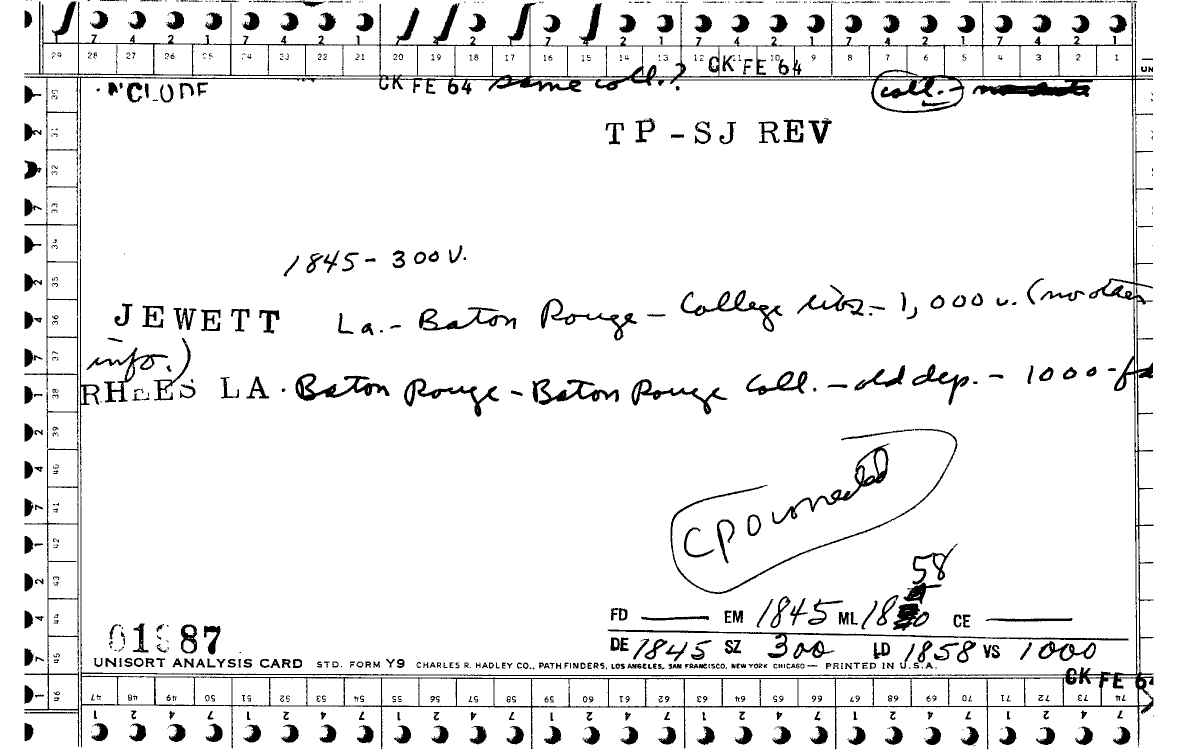 7 4 2 1 7 4 2 1 7 4 2 1 7 4 2 1 7 4 2 1 7 4 2 1
29 28 27 26 25 24 23 22 21 20 19 18 17 16 15 14 13 12 11 10 9 8 7 6 5 4 3 2 1
CK FE 64
NCLUDE CK FE 64 same coll.? coll.-
TP-SJ REV
1845- 300 v.
JEWETT La.- Baton Rouge- College libr.- 1,000 v. (no other
info.)
RHEES LA. Baton Rouge - Baton Rouge Coll. - old dep. - 1000-
58
FD EM 1845 ML 18 0 CE
01987
DE 1845 SZ 300 LD 1858 VS 1000
UNISORT ANALYSIS CARD STD. FORM Y9 CHARLES R. HADLEY CO., PATHFINDERS, LOS ANGELES, SAN FRANCISCO, NEW YORK CHICAGO — PRINTED IN U.S.A.
CK FE 64
47 48 49 50 51 52 53 54 55 56 57 58 59 60 61 62 63 64 65 66 67 68 69 70 71 72 73 74
1 2 4 7 1 2 4 7 1 2 4 7 1 2 4 7 1 2 4 7 1 2 4 7 1 2 4 7